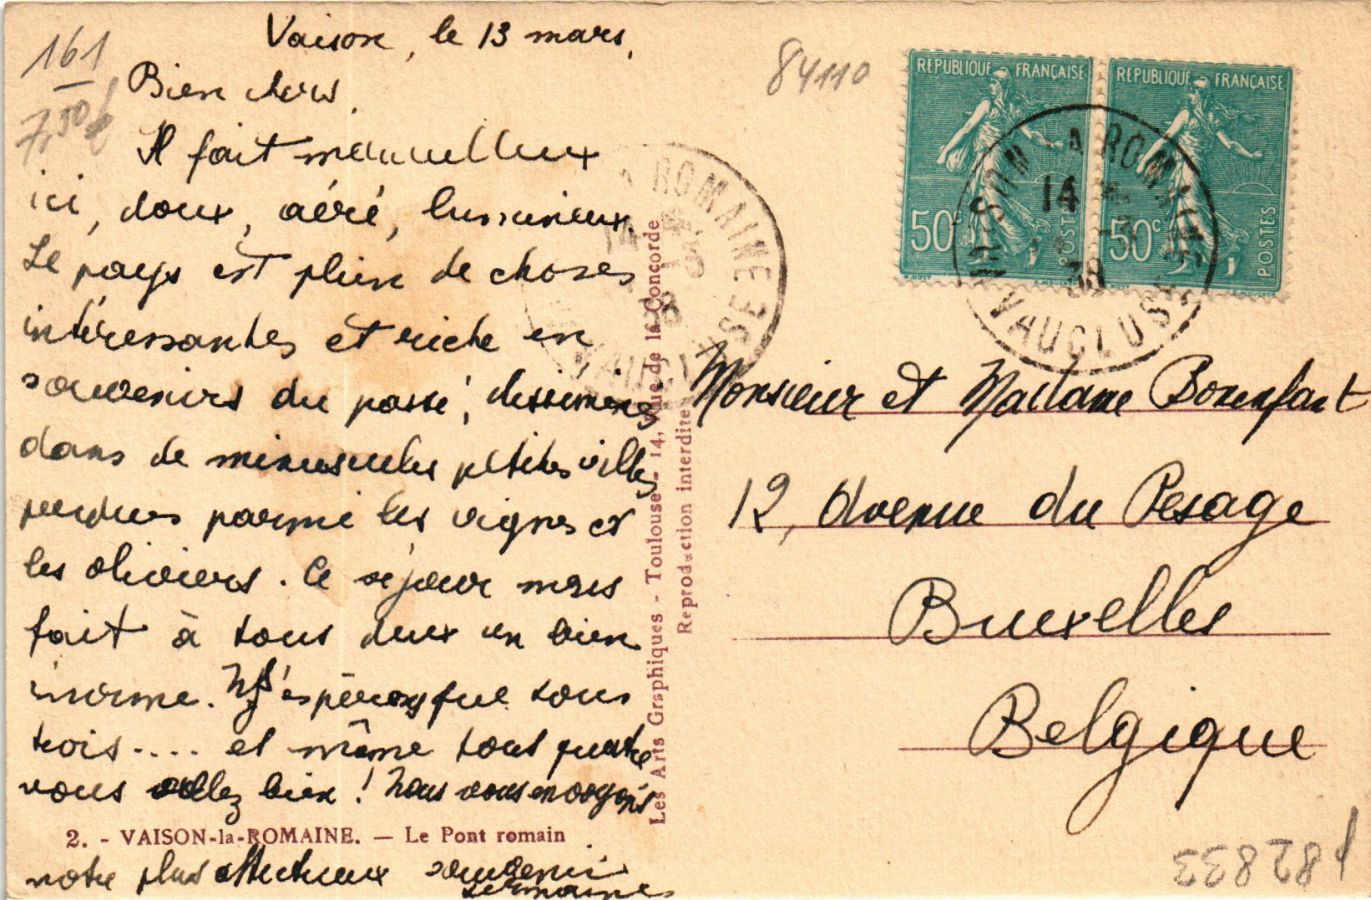 161
7,50€
Vaison, le 13 mars.
Bien chers.
Il fait merveilleux
ici, doux, aéré, lumineux.
Le pays est plein de choses
intéressantes et riche en
souvenirs du passé, disséminés
dans de minuscules petites villes
perdues parmi les vignes et
les oliviers. Ce séjour nous
fait à tous deux un bien
énorme. Ns espérons que tous
trois.... et même tous quatre
vous allez bien ! Nous vous envoyons
2. - VAISON-la-ROMAINE. — Le Pont romain
notre plus affectueux souvenir
Germaine
Les Arts Graphiques - Toulouse - 14, Rue de la Concorde
Reproduction interdite
A ROMAINE
14
38
VAUCLUSE
84110
REPUBLIQUE FRANÇAISE
50c
POSTES
REPUBLIQUE FRANÇAISE
50c
POSTES
VAISON LA ROMAINE
14
38
VAUCLUSE
Monsieur et Madame Bonenfant
12, Avenue du Pesage
Bruxelles
Belgique
182833